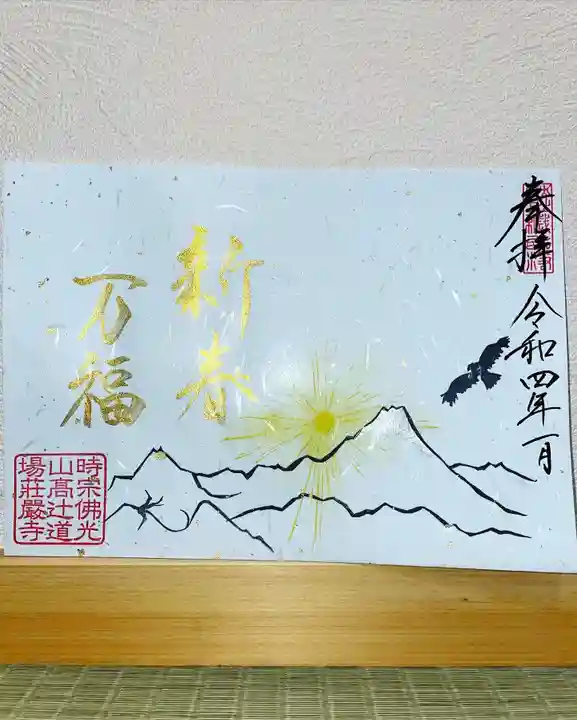 奉拝
令和四年一月
新春
万福
時宗佛光
山高辻道
場莊嚴寺